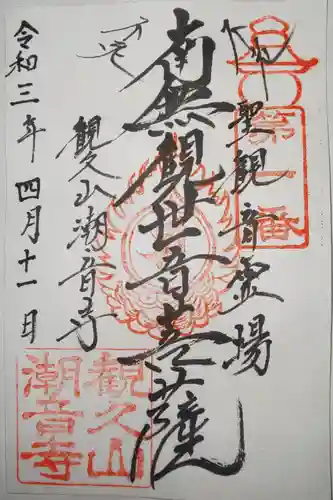 聖観音霊場
第一番
南無観世音菩薩
観久山潮音寺
令和三年四月十一日
観久山
潮音寺